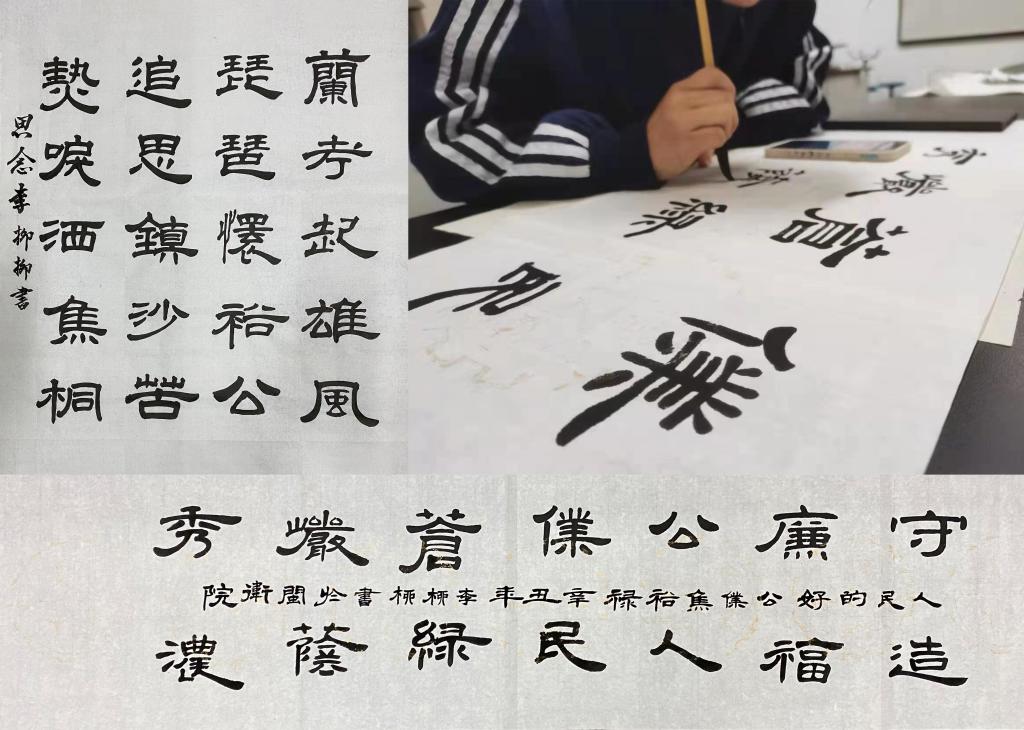 蘭考起雄風
琵琶懷裕公
追思鎮沙苦
熱唳洒焦桐
思念李柳柳書
僕蒼巖秀
民緑蔭
守廉公僕蒼巖秀
人民的好公僕焦裕禄辛丑年李柳柳書於閩衛院
造福人民緑蔭濃